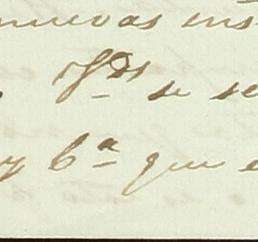 nuevas ins
Vds se se
y Ca que e